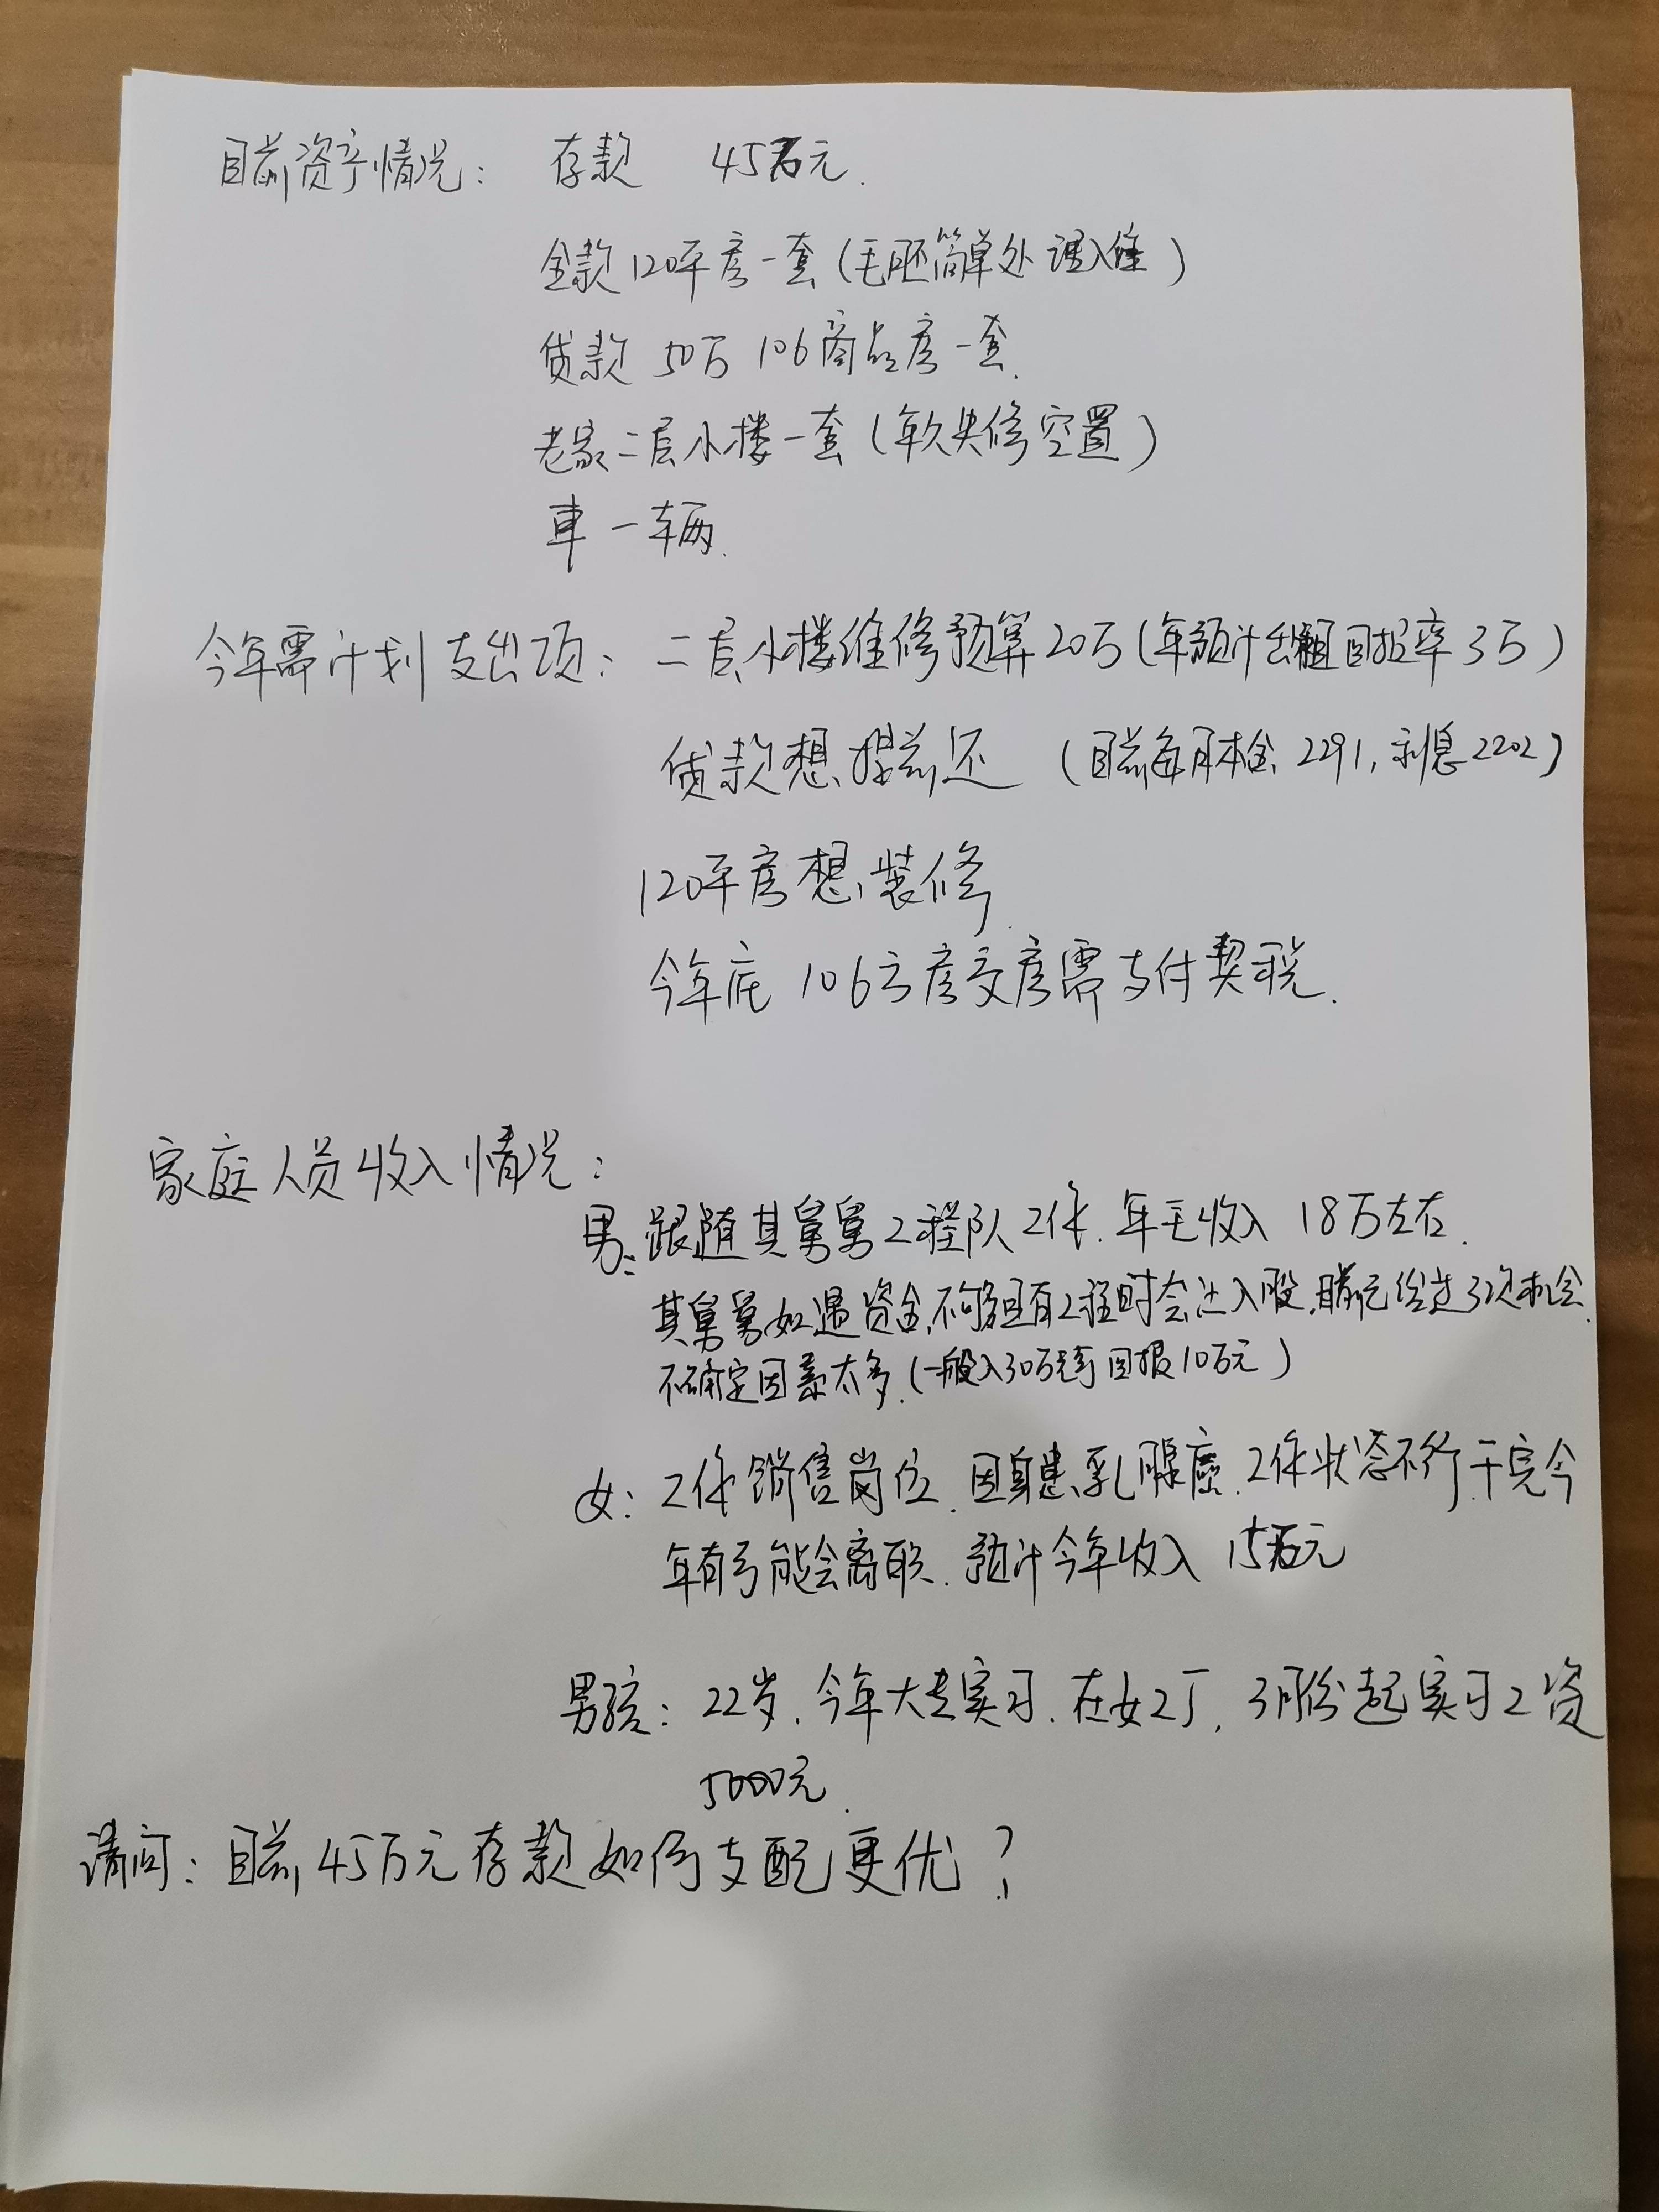 目前资产情况: 存款 45万元.
全款120平房一套(毛胚简单处理入住)
贷款 50万 106商品房一套.
老家二层小楼一套(年久失修空置)
車一辆.
今年需计划支出项: 二层小楼维修预算20万(年预计出租回报率3万)
贷款想提前还 (目前每月本金2291,利息2202)
120平房想装修.
今年底106方房交房需支付契税.
家庭人员收入情况:
男: 跟随其舅舅工程队工作.年毛收入 18万左右.
其舅舅如遇资金不够且有工程时会让入股,目前已给过3次机会.
不确定因素太多.(一般入30万 回报10万元)
女: 工作销售岗位.因身患乳腺癌.工作状态不行.干完今
年有可能会离职.预计今年收入 15万元
男孩: 22岁.今年大专实习.在 工厂,3月份起实习工资
5000元.
请问: 目前45万元存款如何支配更优?